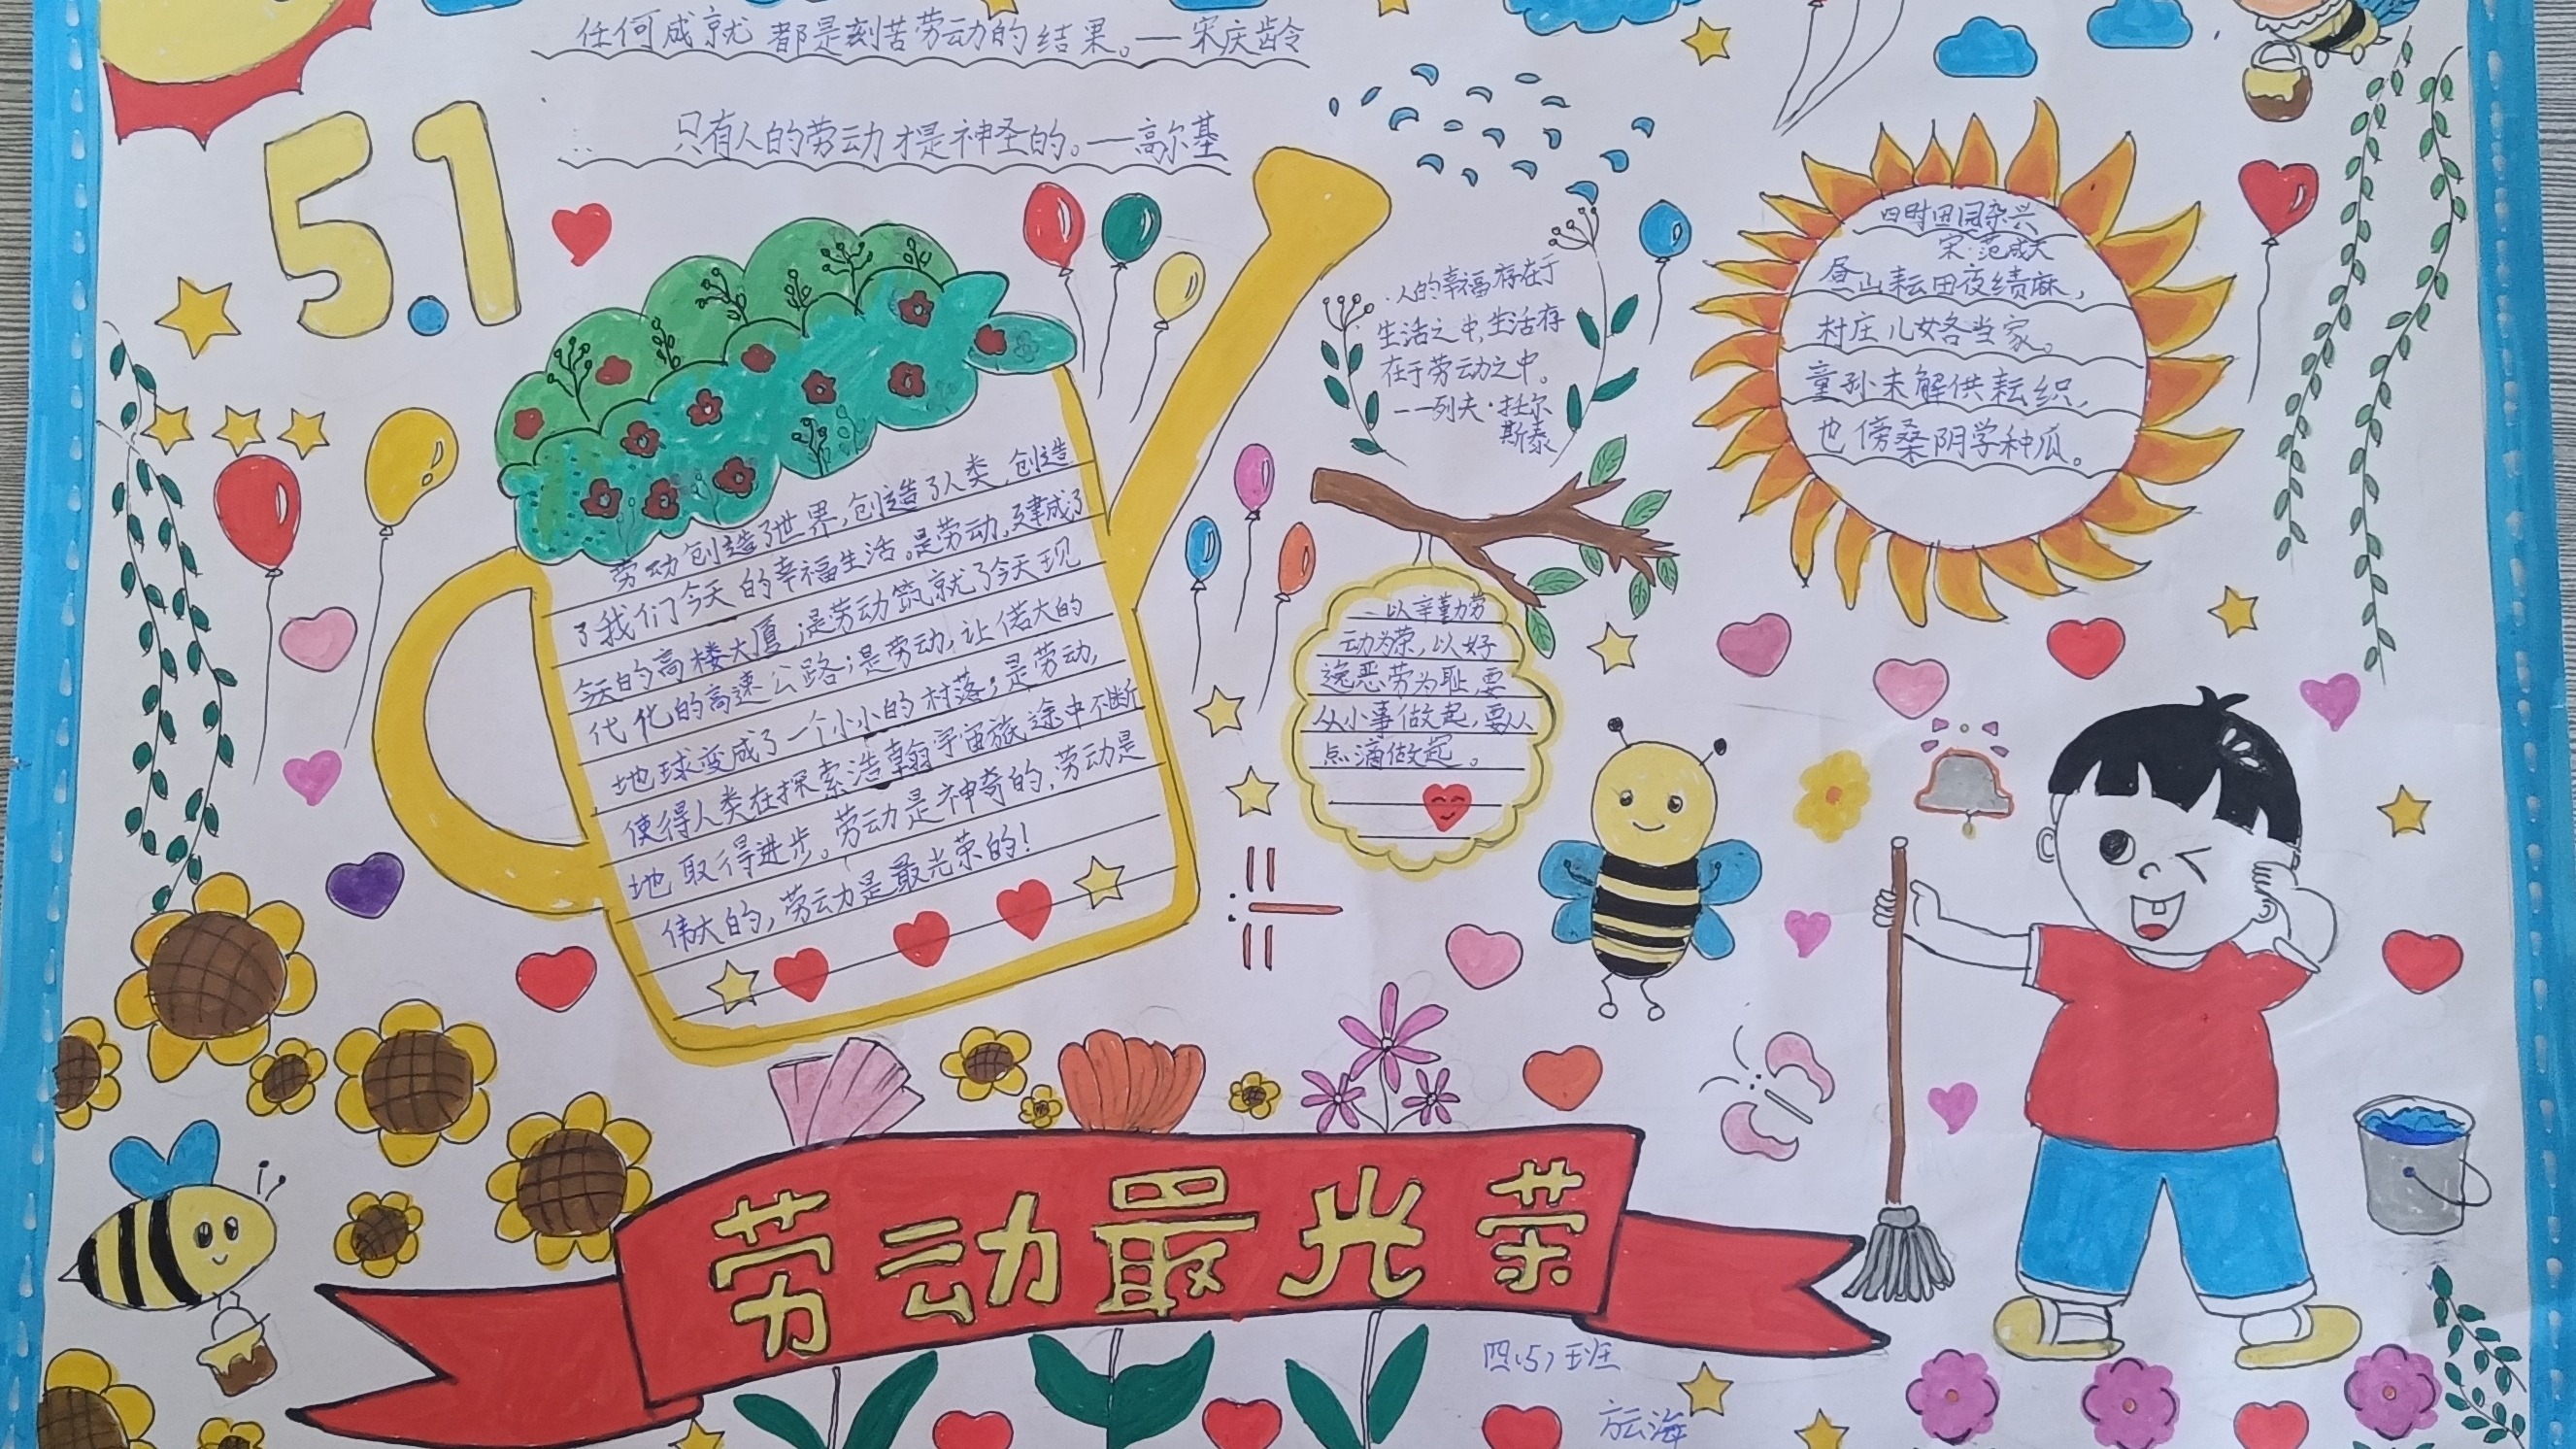 任何成就 都是刻苦劳动的结果。—宋庆龄
只有人的劳动才是神圣的。—高尔基
5.1
劳动创造了世界,创造了人类,创造
了我们今天的幸福生活。是劳动,建成了
今天的高楼大厦;是劳动筑就了今天现
代化的高速公路;是劳动,让偌大的
地球变成了一个小小的村落;是劳动,
使得人类在探索浩翰宇宙旅途中不断
地取得进步。劳动是神奇的,劳动是
伟大的,劳动是最光荣的!
人的幸福存在于
生活之中,生活存
在于劳动之中。
——列夫·托尔
斯泰
四时田园杂兴
宋·范成大
昼出耘田夜绩麻,
村庄儿女各当家。
童孙未解供耘织,
也傍桑阴学种瓜。
以辛勤劳
动为荣,以好
逸恶劳为耻,要
从小事做起,要从
点滴做起。
劳动最光荣
四(5)班